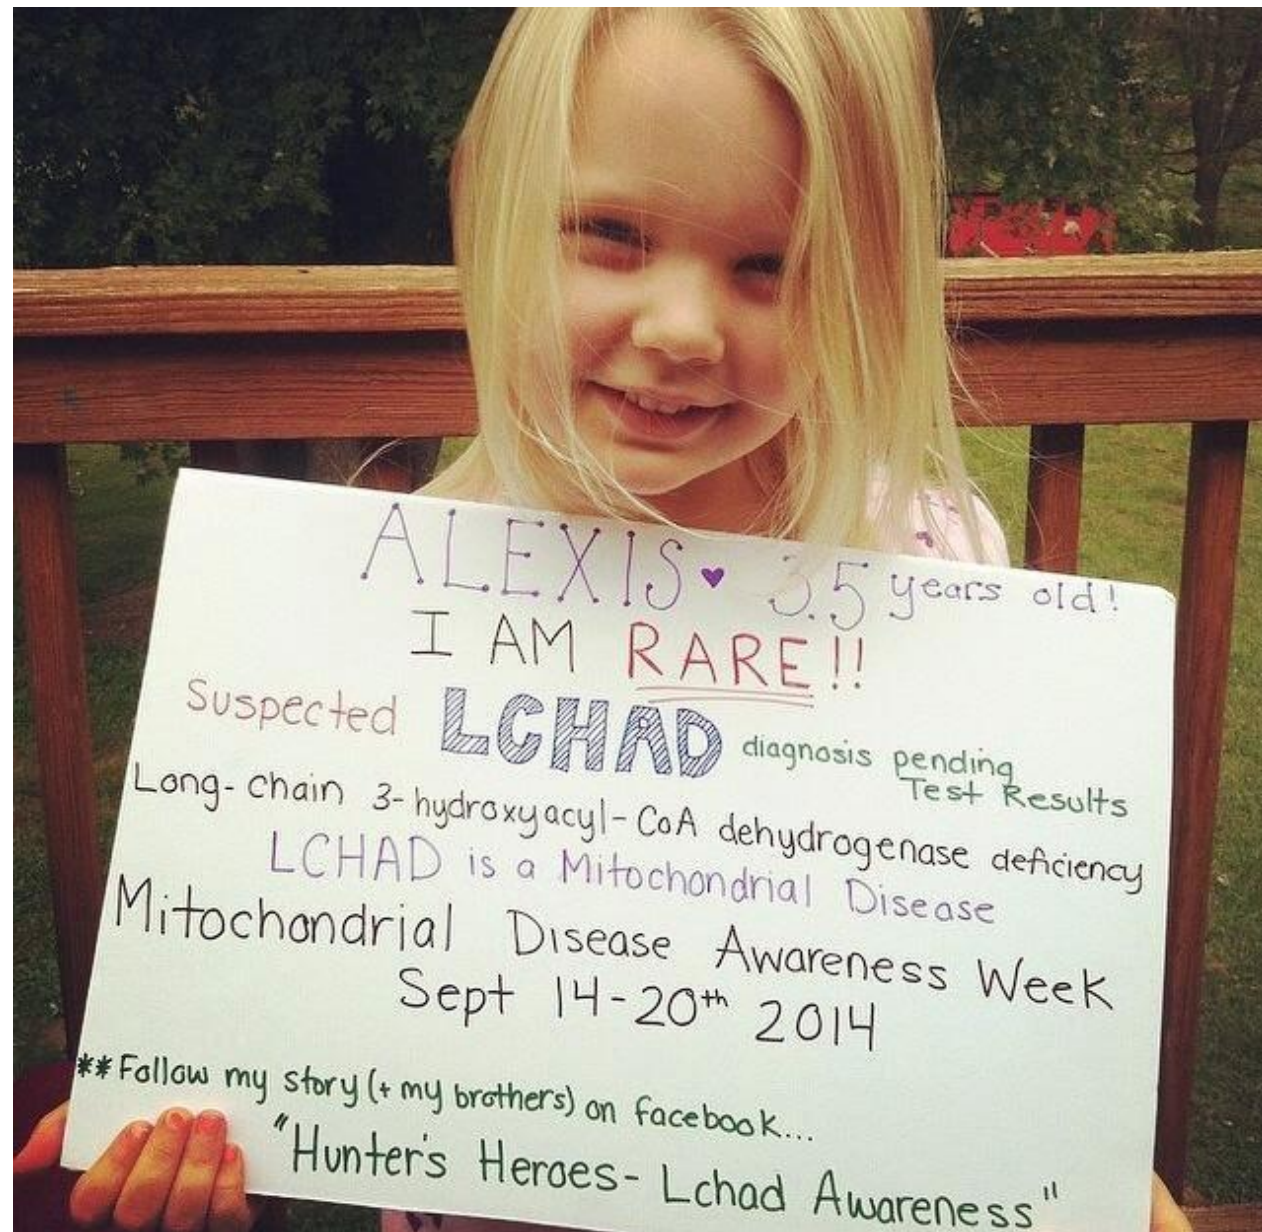 ALEXIS ♥ 3.5 years old!
I AM RARE!!
Suspected LCHAD diagnosis pending
Test Results
Long-chain 3-hydroxyacyl-CoA dehydrogenase deficiency
LCHAD is a Mitochondrial Disease
Mitochondrial Disease Awareness Week
Sept 14-20th 2014
**Follow my story (+ my brothers) on facebook...
"Hunter's Heroes- Lchad Awareness"